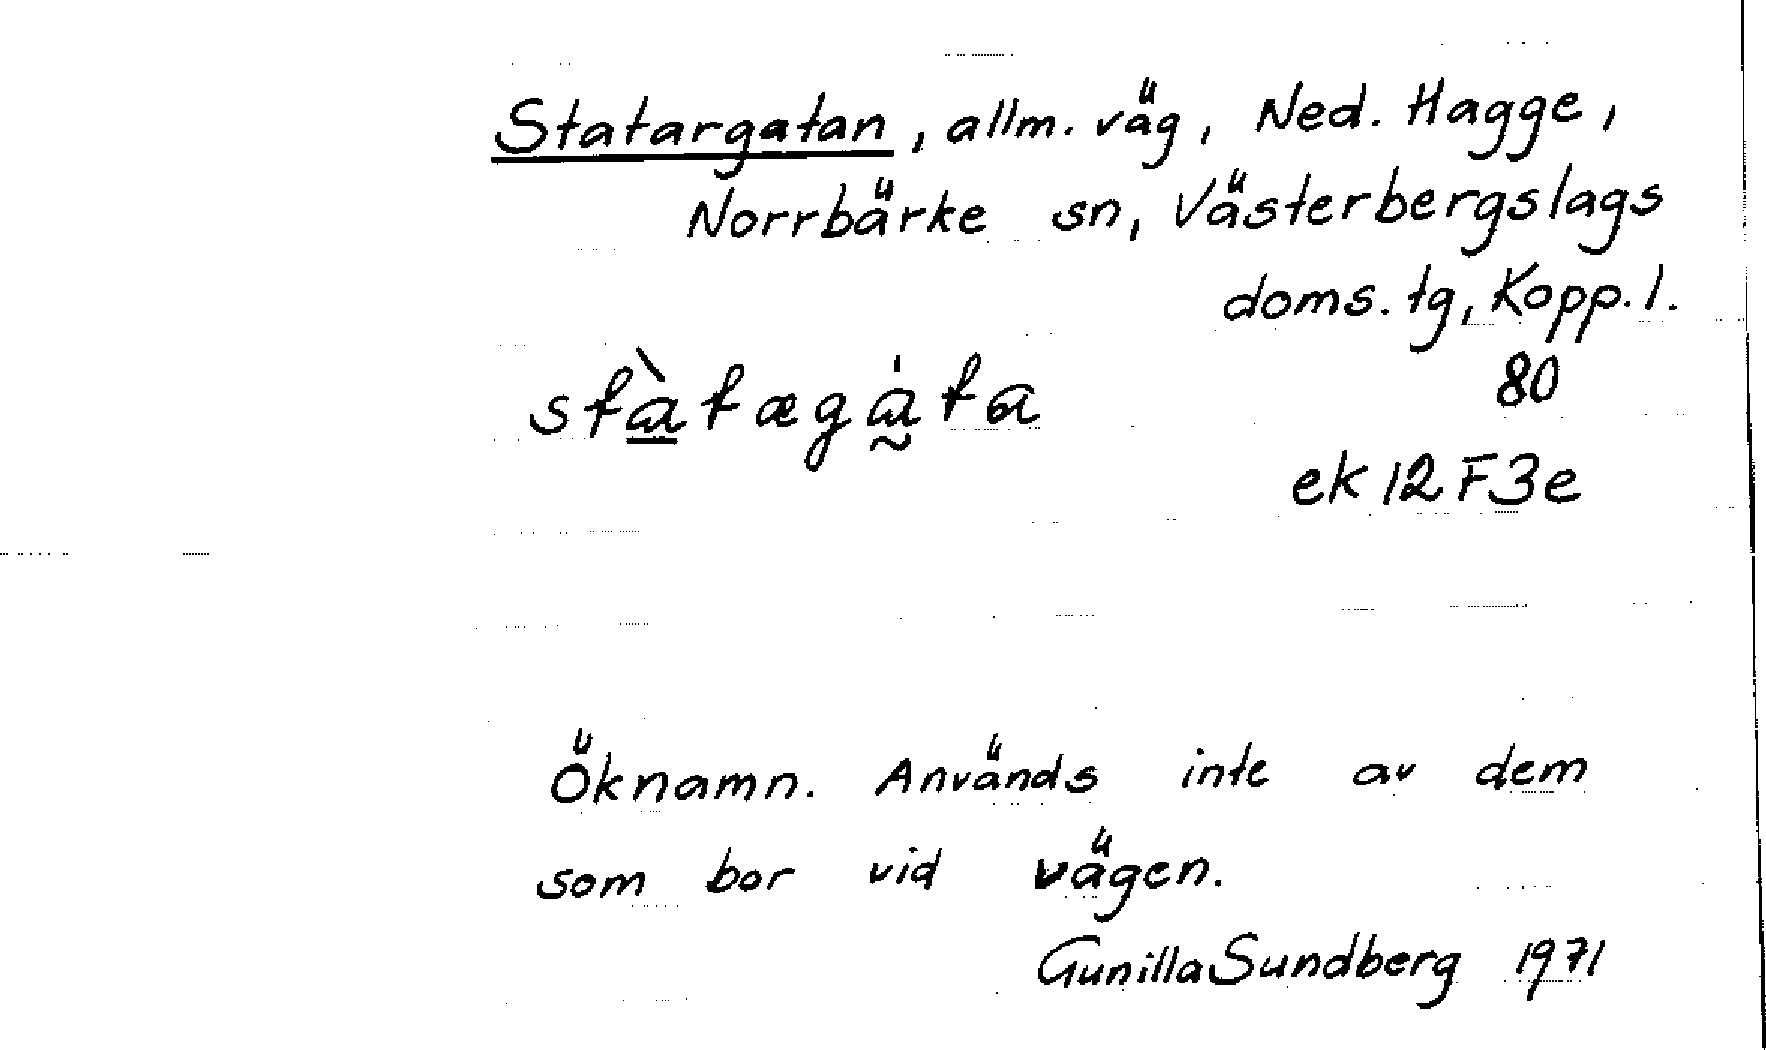 Statargatan, allm. väg, Ned. Hagge,
Norrbärke sn, Västerbergslags
doms. tg, Kopp. l.
80
ek 12F3e
Öknamn. Används inte av dem
som bor vid vägen.
Gunilla Sundberg 1971